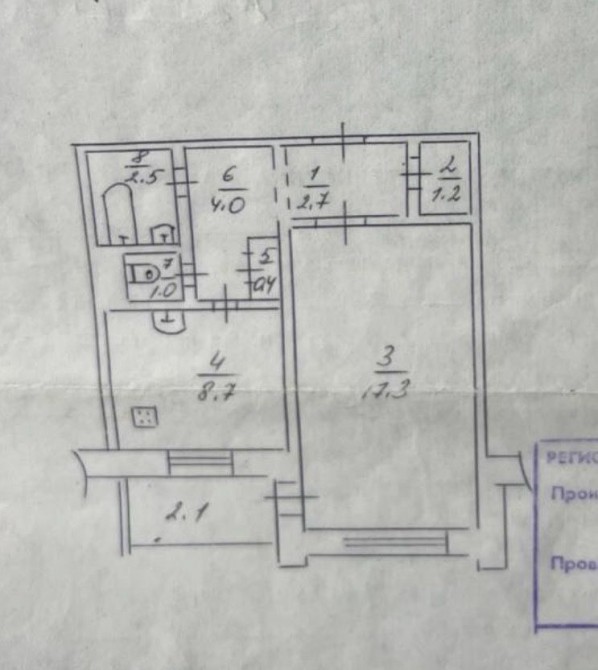 8
2.5
6
4.0
1
2.7
2
1.2
7
1.0
5
0.4
4
8.7
3
17.3
2.1
РЕГИС
Прои
Пров